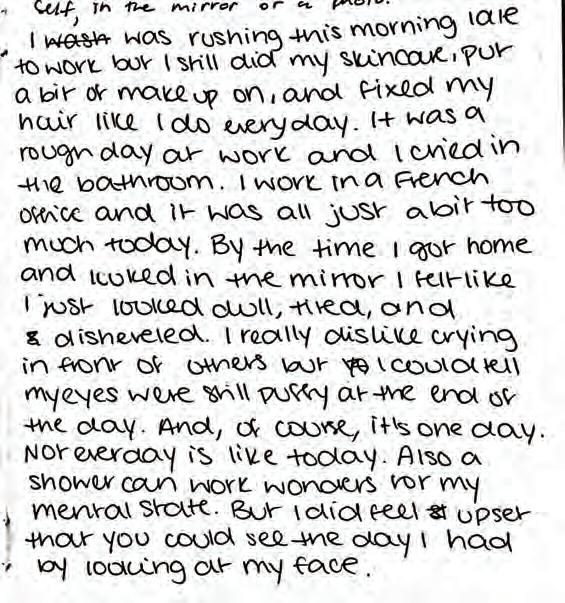 self, in the mirror or a photo.
I wash was rushing this morning late
to work but I still did my skincare, put
a bit of make up on, and fixed my
hair like I do everyday. It was a
rough day at work and I cried in
the bathroom. I work in a French
office and it was all just a bit too
much today. By the time I got home
and looked in the mirror I felt like
I just looked dull, tired, and
& disheveled. I really dislike crying
in front of others but I could tell
my eyes were still puffy at the end of
the day. And, of course, it's one day.
Not everday is like today. Also a
shower can work wonders for my
mental state. But I did feel upset
that you could see the day I had
by looking at my face.